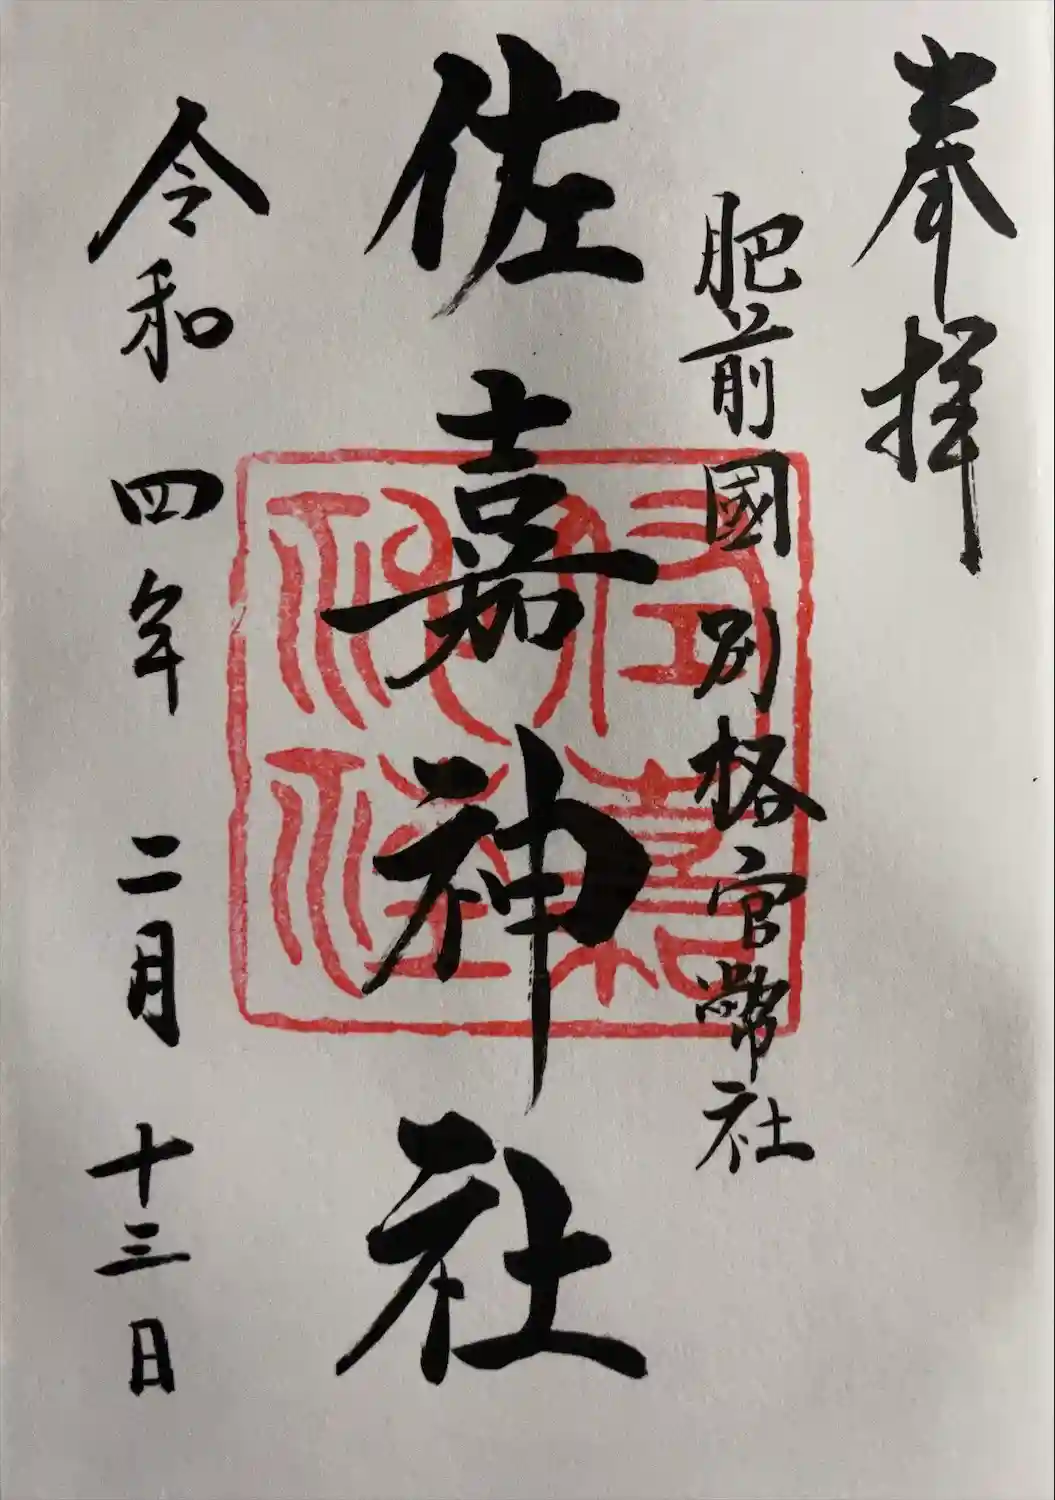 奉拝
肥前國 別格官幣社
佐嘉神社
佐嘉神社
令和四年 二月 十三日